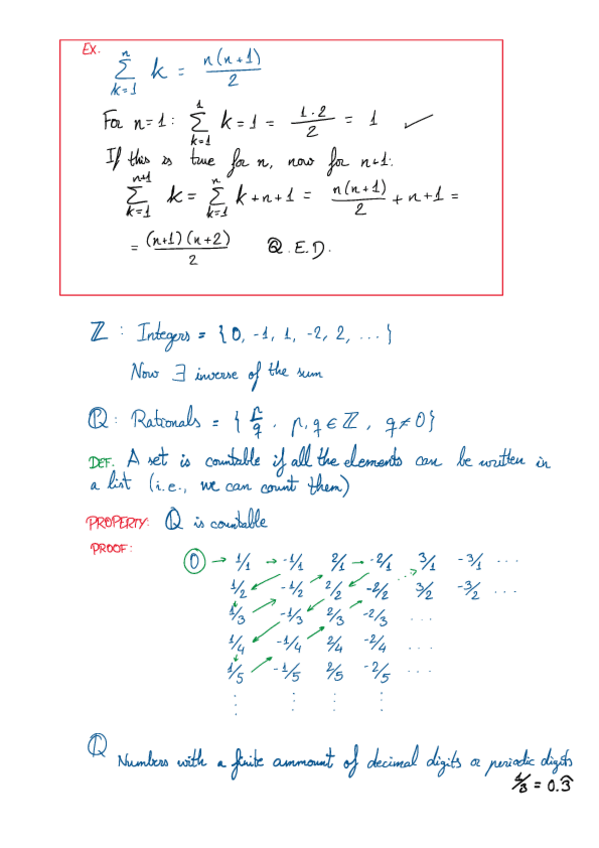 Ex.
n∑k=1 k = n(n+1)/2
For n=1: 1∑k=1 k=1 = 1·2/2 = 1 ✓
If this is true for n, now for n+1:
n+1∑k=1 k = n∑k=1 k+n+1 = n(n+1)/2 + n+1 =
= (n+1)(n+2)/2 Q.E.D.
ℤ : Integers = {0, -1, 1, -2, 2, ...}
Now ∃ inverse of the sum
ℚ: Rationals = { p/q , p,q ∈ ℤ , q≠0}
DEF. A set is countable if all the elements can be written in
a list (i.e., we can count them)
PROPERTY: ℚ is countable
PROOF:
0 → 1/1 → -1/1 2/1 → -2/1 3/1 -3/1 ...
1/2 -1/2 2/2 -2/2 3/2 -3/2 ...
1/3 -1/3 2/3 -2/3 ...
1/4 -1/4 2/4 -2/4 ...
1/5 -1/5 2/5 -2/5 ...
⋮ ⋮ ⋮ ⋮
ℚ
Numbers with a finite ammount of decimal digits or periodic digits
1/3 = 0.3̂